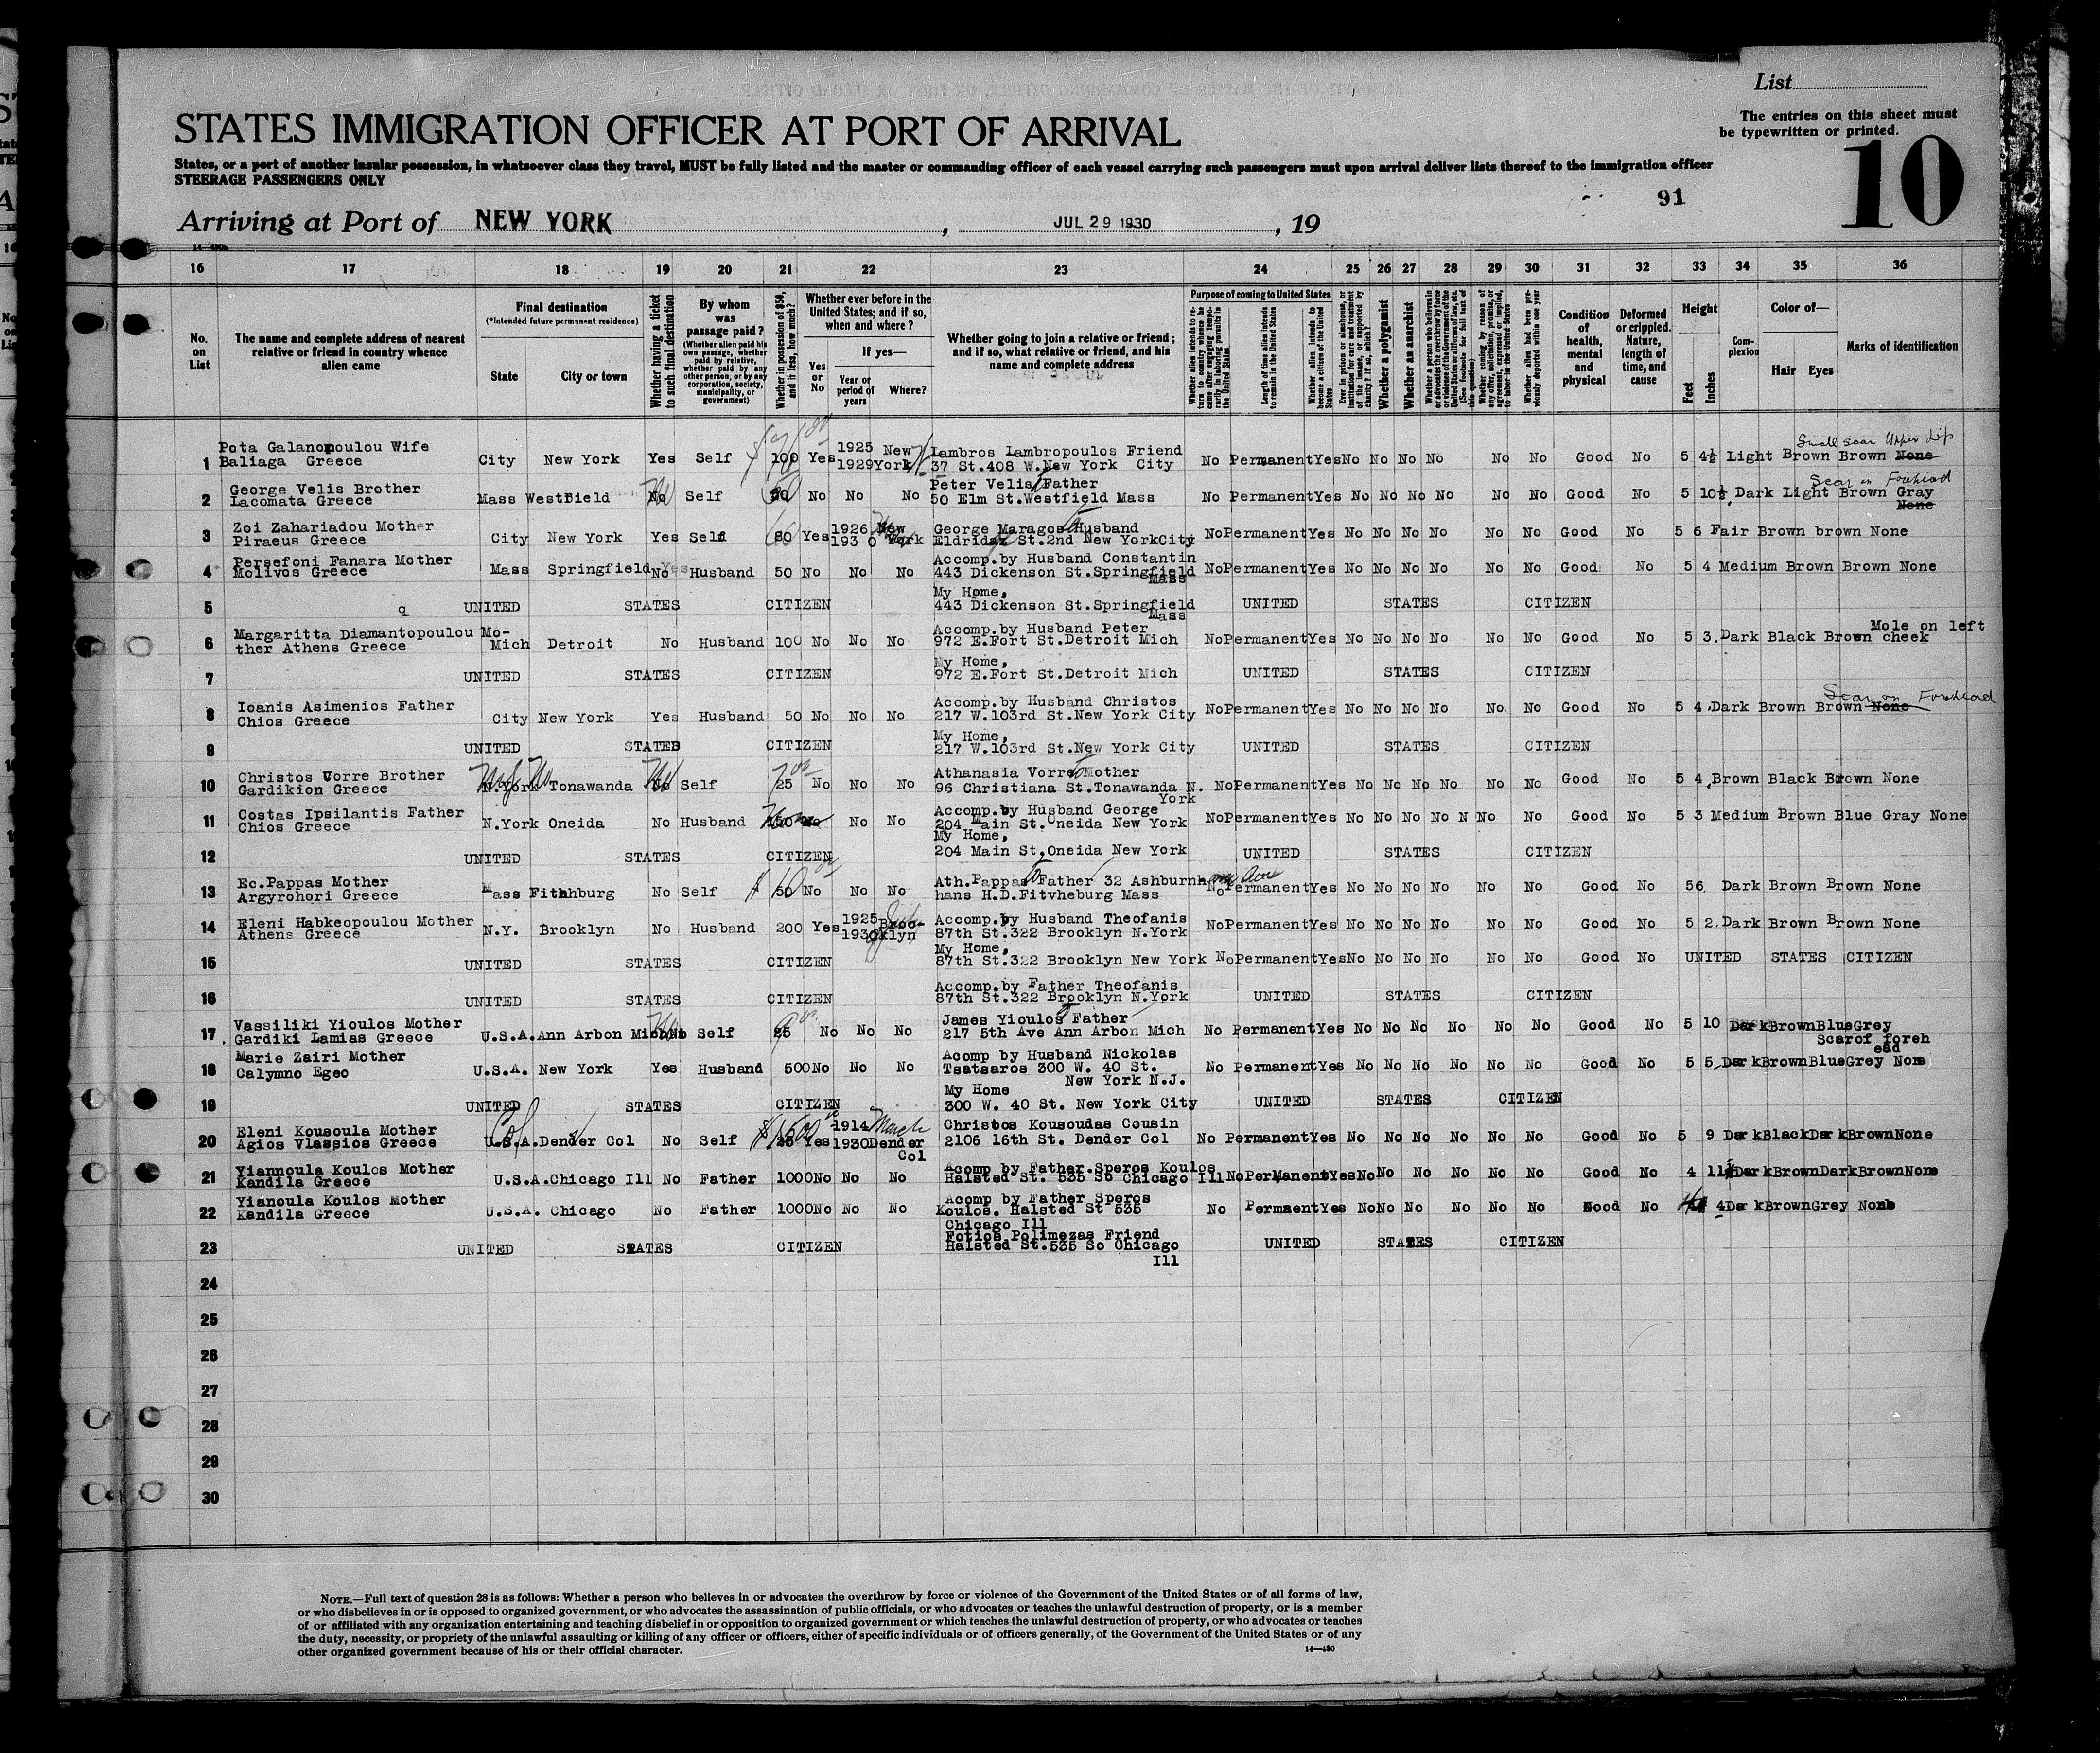 List
The entries on this sheet must
be typewritten or printed.
STATES IMMIGRATION OFFICER AT PORT OF ARRIVAL
10
States, or a port of another insular possession, in whatsoever class they travel, MUST be fully listed and the master or commanding officer of each vessel carrying such passengers must upon arrival deliver lists thereof to the immigration officer
STEERAGE PASSENGERS ONLY
91
Arriving at Port of NEW YORK , JUL 29 1930 , 19
16 17 18 19 20 21 22 23 24 25 26 27 28 29 30 31 32 33 34 35 36
No. on List
The name and complete address of nearest relative or friend in country whence alien came
Final destination
(*Intended future permanent residence)
State
City or town
Whether having a ticket to such final destination
By whom was passage paid?
(Whether alien paid his own passage, whether paid by relative, whether paid by any other person, or by any corporation, society, municipality, or government)
Whether in possession of $50, and if less, how much?
Whether ever before in the United States; and if so, when and where?
Yes or No
If yes—
Year or period of years
Where?
Whether going to join a relative or friend; and if so, what relative or friend, and his name and complete address
Purpose of coming to United States
Length of time alien intends to remain in the United States
Whether alien intends to become a citizen of the United States
Whether a polygamist
Whether an anarchist
Condition of health, mental and physical
Deformed or crippled. Nature, length of time, and cause
Height
Feet
Inches
Complexion
Color of—
Hair Eyes
Marks of identification
1 Pota Galanopoulou Wife Baliaga Greece City New York Yes Self 100 Yes 1925 1929 New York Lambros Lambropoulos Friend 37 St.408 W.New York City No Permanent Yes No No No No No No Good No 5 4½ Light Brown Brown None Small scar Upper Lip
2 George Velis Brother Lacomata Greece Mass Westfield No Self No No No Peter Velis Father 50 Elm St.Westfield Mass No Permanent Yes No No No No No No Good No 5 10½ Dark Light Brown Gray None Scar on Forehead
3 Zoi Zahariadou Mother Piraeus Greece City New York Yes Self 80 Yes 1926 193 0 New York George Maragos Husband Eldridge St.2nd New York City No Permanent Yes No No No No No No Good No 5 6 Fair Brown brown None
4 Persefoni Fanara Mother Molivos Greece Mass Springfield No Yes Husband 50 No No No Accomp.by Husband Constantin 443 Dickenson St.Springfield Mass No Permanent Yes No No No No No No Good No 5 4 Medium Brown Brown None
5 q UNITED STATES CITIZEN My Home, 443 Dickenson St.Springfield Mass UNITED STATES CITIZEN
6 Margaritta Diamantopoulou Mo- ther Athens Greece Mich Detroit No Husband 100 No No No Accomp.by Husband Peter 972 E.Fort St.Detroit Mich No Permanent Yes No No No No No No Good No 5 3. Dark Black Brown Mole on left cheek
7 UNITED STATES CITIZEN My Home, 972 E.Fort St.Detroit Mich UNITED STATES CITIZEN
8 Ioanis Asimenios Father Chios Greece City New York Yes Husband 50 No No No Accomp.by Husband Christos 217 W.103rd St.New York City No Permanent Yes No No No No No No Good No 5 4. Dark Brown Brown None Scar on Forehead
9 UNITED STATES CITIZEN My Home, 217 W.103rd St.New York City UNITED STATES CITIZEN
10 Christos Vorre Brother Gardikion Greece N.York Tonawanda No Self 25 No No No Athanasia Vorre Mother 96 Christiana St.Tonawanda N. York No Permanent Yes No No No No No No Good No 5 4, Brown Black Brown None
11 Costas Ipsilantis Father Chios Greece N.York Oneida No Husband No No Accomp.by Husband George 204 Main St.Oneida New York No Permanent Yes No No No No N No No Good No 5 3 Medium Brown Blue Gray None
12 UNITED STATES CITIZEN My Home, 204 Main St,Oneida New York UNITED STATES CITIZEN
13 Ec.Pappas Mother Argyrohori Greece Mass Fitchburg No Self 50 No No No Ath.Pappas Father 32 Ashburn hans H.D.Fitvheburg Mass No Permanent Yes No No No No No No Good No 56. Dark Brown Brown None
14 Eleni Habkeopoulou Mother Athens Greece N.Y. Brooklyn No Husband 200 Yes 1925 1930 Broo- klyn Accomp.by Husband Theofanis 87th St.322 Brooklyn N.York No Permanent Yes No No No No No No Good No 5 2. Dark Brown Brown None
15 UNITED STATES CITIZEN My Home, 87th St.322 Brooklyn New York No Permanent Yes No No No No No No Good No UNITED STATES CITIZEN
16 UNITED STATES CITIZEN Accomp.by Father Theofanis 87th St.322 Brooklyn N.York UNITED STATES CITIZEN
17 Vassiliki Yioulos Mother Gardiki Lamias Greece U.S.A. Ann Arbon Mich No Self 25 No No No James Yioulos Father 217 5th Ave Ann Arbon Mich No Permanent Yes No No No No No No Good No 5 10 Dark Brown Blue Grey Scar of foreh ead
18 Marie Zairi Mother Calymno Egeo U.S.A. New York Yes Husband 500 No No No Acomp by Husband Nickolas Tsatsaros 300 W. 40 St. New York N.J. No Permanent Yes No No No No No No Good No 5 5, Dark Brown Blue Grey None
19 UNITED STATES CITIZEN My Home 300 W. 40 St. New York City UNITED STATES CITIZEN
20 Eleni Kousoula Mother Agios Vlassios Greece U.S.A. Dender Col No Self 25 Yes 1914 1930 March Dender Col Christos Kousoudas Cousin 2106 16th St. Dender Col No Permanent Yes No No No No No No Good No 5 9 Dark Black Dark Brown None
21 Yiannoula Koulos Mother Kandila Greece U.S.A. Chicago Ill No Father 1000 No No No Acomp by Father Speros Koulos Halsted St. 535 So Chicago Ill No Permanent Yes No No No No No No Good No 4 11½ Dark Brown Dark Brown None
22 Yianoula Koulos Mother Kandila Greece U.S.A. Chicago No Father 1000 No No No Acomp by Father Speros Koulos. Halsted St 535 Chicago Ill No Permaent Yes No No No No No No Good No 4 Dark Brown Grey None
23 UNITED STATES CITIZEN Fotios Polimezas Friend Halsted St.535 So Chicago Ill UNITED STATES CITIZEN
24
25
26
27
28
29
30
NOTE.—Full text of question 28 is as follows: Whether a person who believes in or advocates the overthrow by force or violence of the Government of the United States or of all forms of law,
or who disbelieves in or is opposed to organized government, or who advocates the assassination of public officials, or who advocates or teaches the unlawful destruction of property, or is a member
of or affiliated with any organization entertaining and teaching disbelief in or opposition to organized government or which teaches the unlawful destruction of property, or who advocates or teaches
the duty, necessity, or propriety of the unlawful assaulting or killing of any officer or officers, either of specific individuals or of officers generally, of the Government of the United States or of any
other organized government because of his or their official character.
14—480